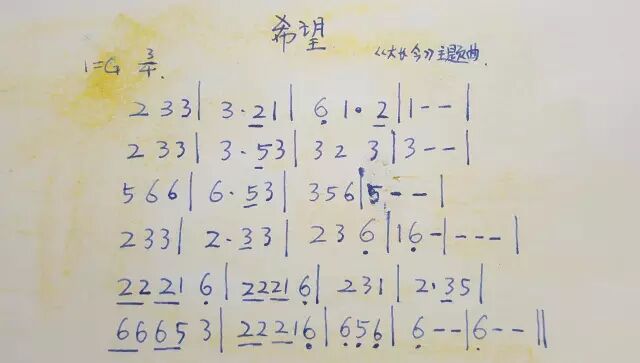 希望
1=G 3/4
《大长今》主题曲.
2 3 3 | 3 · 2 1 | 6 1 · 2 | 1 - - |
2 3 3 | 3 · 5 3 | 3 2 3 | 3 - - |
5 6 6 | 6 · 5 3 | 3 5 6 | 5 - - |
2 3 3 | 2 · 3 3 | 2 3 6 | 1 6 - | - - - |
2 2 2 1 6 | 2 2 2 1 6 | 2 3 1 | 2 · 3 5 |
6 6 6 5 3 | 2 2 2 1 6 | 6 5 6 | 6 - - | 6 - - ||